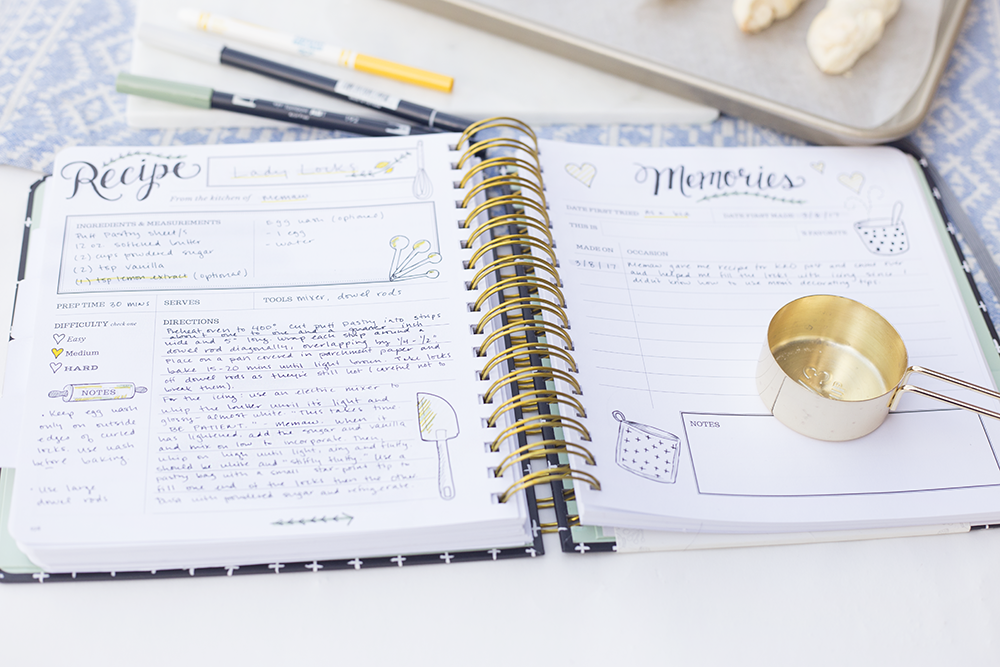 Recipe
Lady Locks
From the kitchen of memaw
INGREDIENTS & MEASUREMENTS
Puff pastry sheet/s
12 oz softened butter
(2) cups powdered sugar
(2) tsp vanilla
(1) tsp lemon extract (optional)
egg wash (optional)
- 1 egg
- water
PREP TIME 30 mins SERVES TOOLS mixer, dowel rods
DIFFICULTY check one
Easy
Medium
HARD
NOTES
· Keep egg wash
only on outside
edges of curled
locks. Use wash
before baking
· Use large
dowel rods
DIRECTIONS
Preheat oven to 400°. Cut puff pastry into strips
about one to one and a quarter inch
wide and 5" long. Wrap each strip around
dowel rod diagonally, overlapping by 1/4-1/2".
Place on a pan covered in parchment paper and
bake 15-20 mins until light brown. Take locks
off dowel rods as they're still hot (careful not to
break them).
For the icing: use an electric mixer to
whip the butter until its light and
airy - almost white. This takes time
"BE PATIENT." - memaw. When butter
has lightened, add the sugar and vanilla
and mix on low to incorporate. Then,
whip on high until light, airy and they
should be white and "stiffly fluffy." Use a
pastry bag with a small star-point tip to
fill one end of the locks then the other.
Dust with powdered sugar and refrigerate
Memories
DATE FIRST TRIED as a kid DATE FIRST MADE 3/8/17
THIS IS FAVORITE
MADE ON OCCASION
3/8/17 Memaw gave me recipe for and
and helped me fill the locks with icing since I
didn't know how to use decorating tips
NOTES